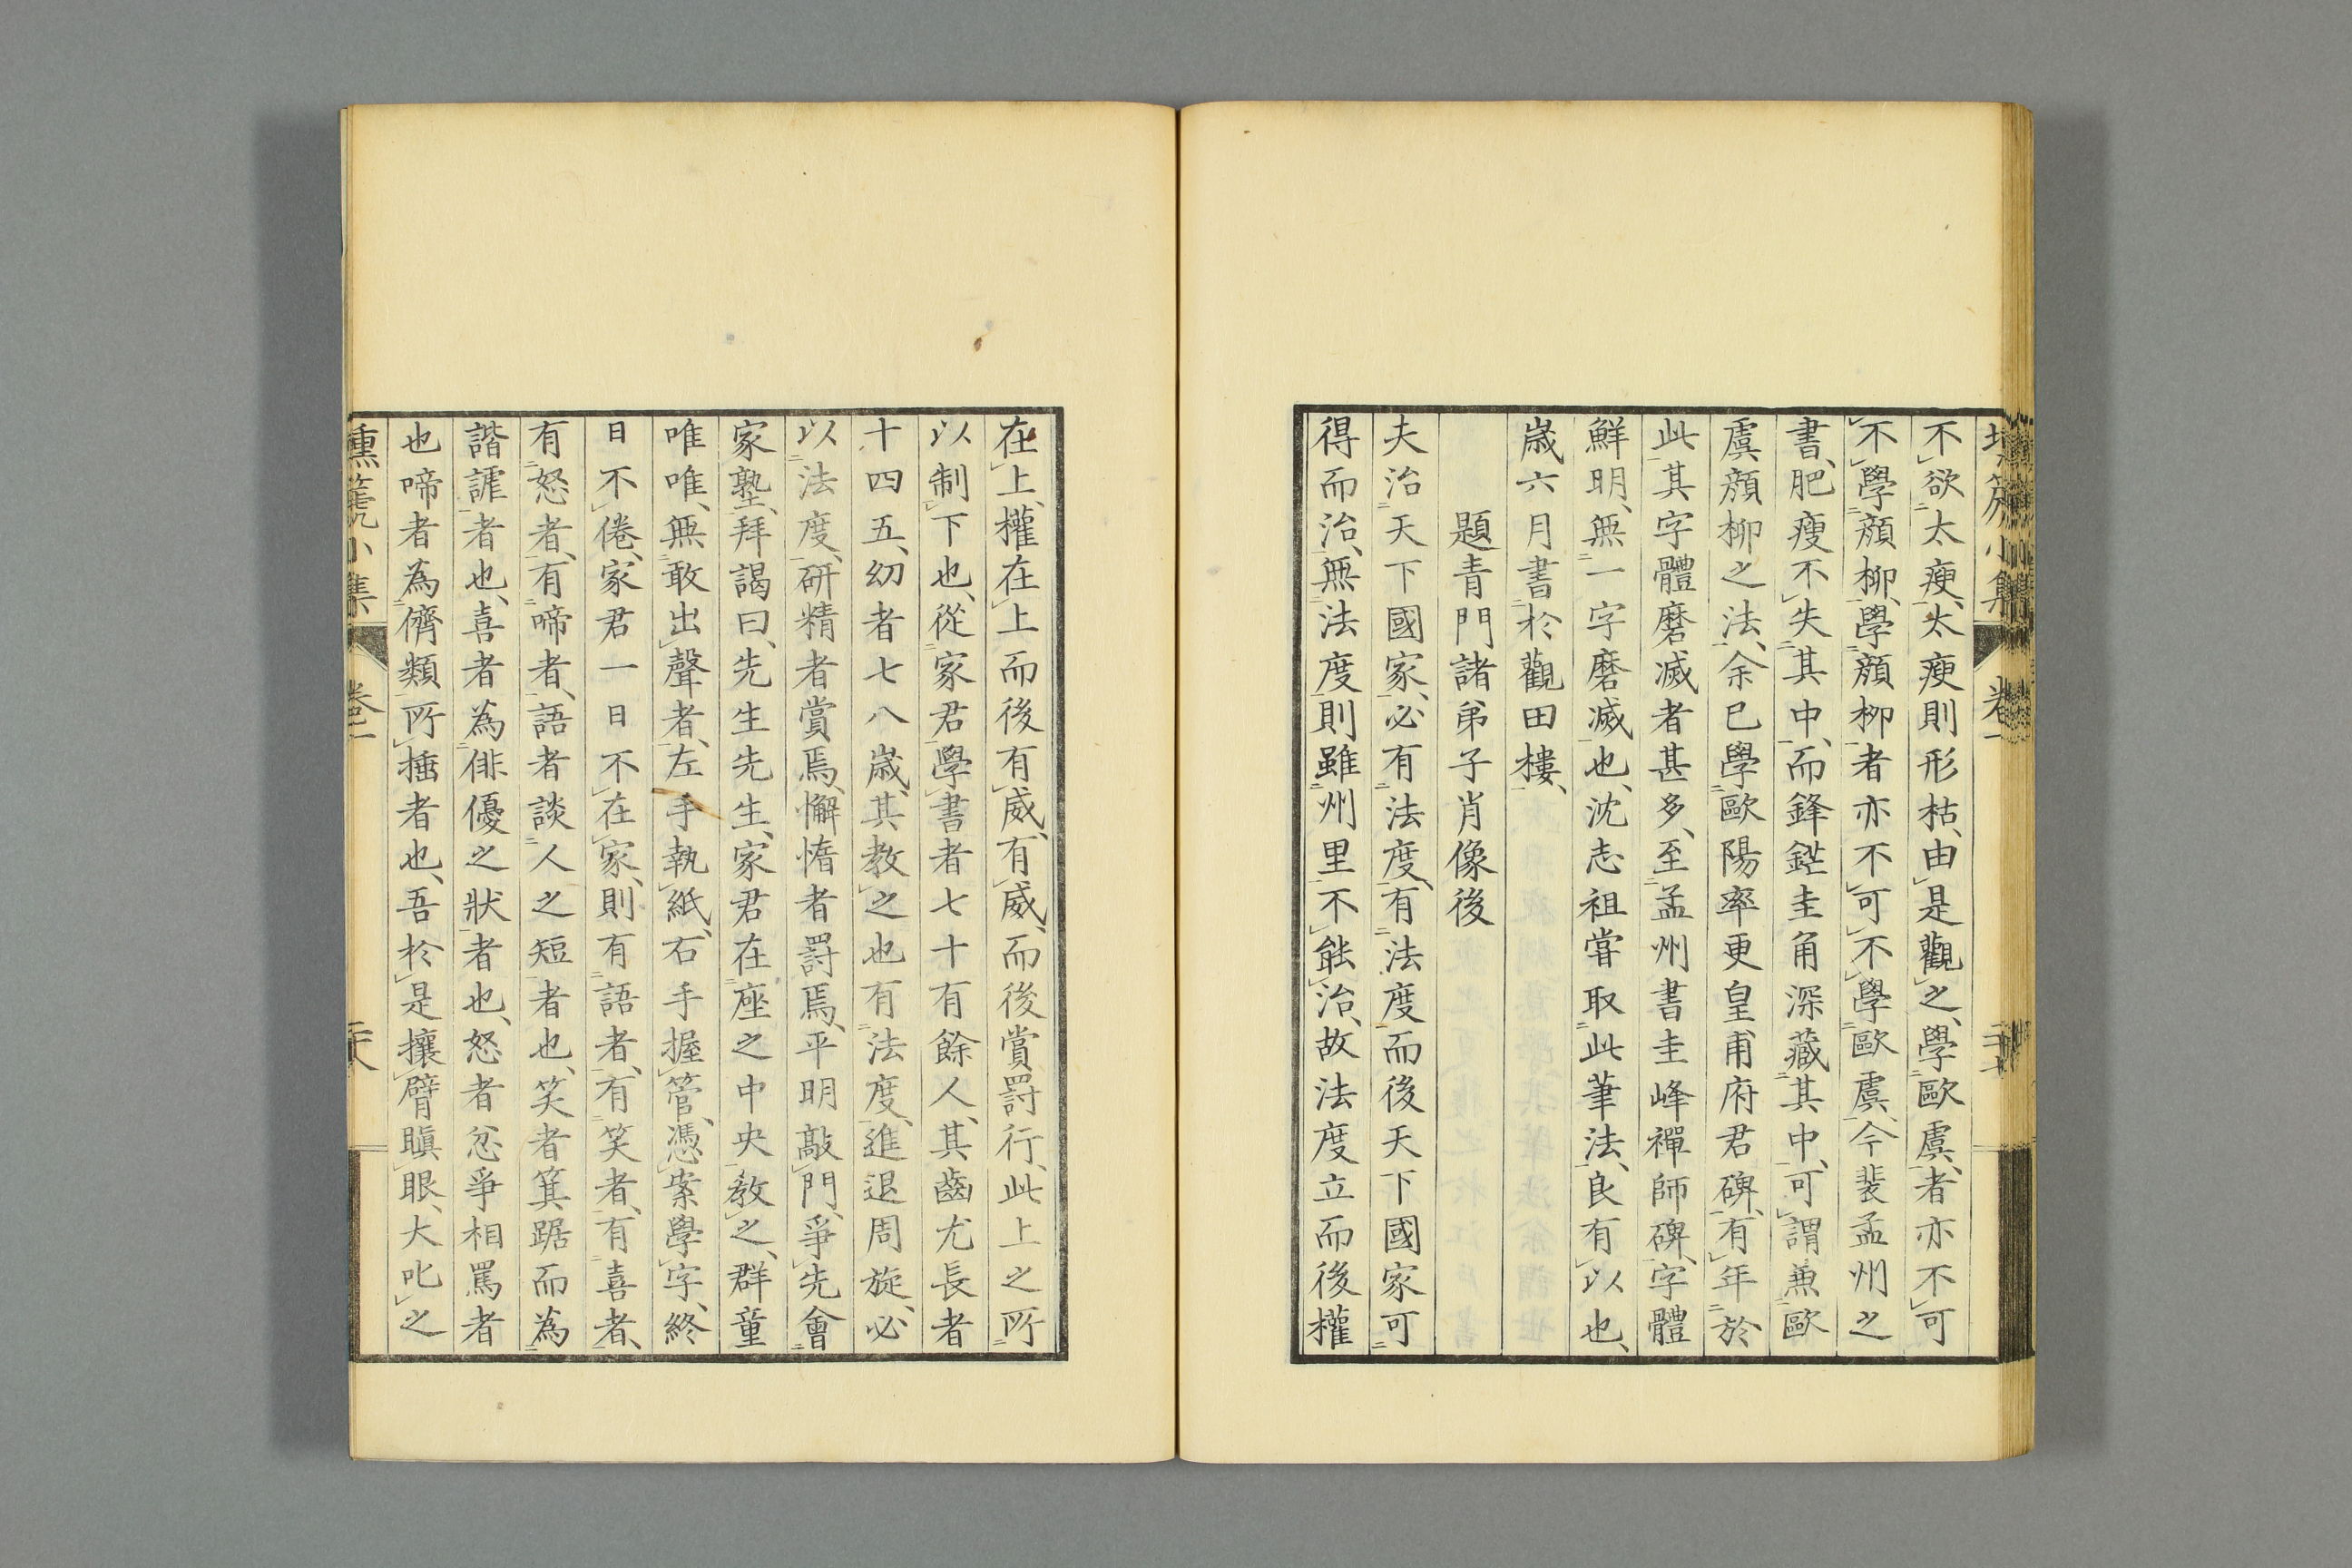 不欲太瘦、太瘦則形枯、由是觀之、學歐虞者亦不可
不學顏柳、學顏柳者亦不可不學歐虞、今裴孟州之
書、肥瘦不失其中、而鋒鋩圭角深藏其中、可謂兼歐
虞顏柳之法、余已學歐陽率更皇甫府君碑、有年於
此、其字體磨滅者甚多、至孟州書圭峰禪師碑、字體
鮮明、無一字磨滅也、沈志祖嘗取此筆法、良有以也、
歲六月書於觀田樓、
題青門諸弟子肖像後
夫治天下國家、必有法度、有法度而後天下國家可
得而治、無法度則雖州里不能治、故法度立而後權
在上、權在上而後有威、有威、而後賞罰行、此上之所
以制下也、從家君學書者七十有餘人、其齒尤長者
十四五、幼者七八歲、其教之也有法度、進退周旋、必
以法度、研精者賞焉、懈惰者罰焉、平明敲門、爭先會
家塾、拜謁曰、先生先生、家君在座之中央教之、群童
唯唯、無敢出聲者、左手執紙、右手握管、憑案學字、終
日不倦、家君一日不在家、則有語者、有笑者、有喜者、
有怒者、有啼者、語者談人之短者也、笑者箕踞而為
諧謔者也、喜者為俳優之狀者也、怒者忿爭相罵者
也、啼者為儕類所捶者也、吾於是攘臂瞋眼、大叱之
壎篪小集 卷一 二十八